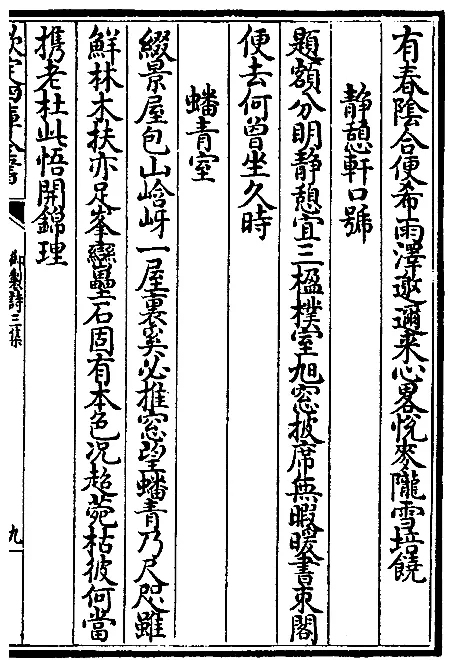 有春陰合便希雨澤邀邇来心畧悅麥隴雪培饒
静憩軒口號
題額分明静憩宜三楹樸室旭窓披席無暇暖書東閣
便去何曾坐久時
蟠青室
綴景屋包山㟏岈一屋裏奚必推窓望蟠青乃尺咫雖
鮮林木扶亦足峯巒壘石固有本色况超菀枯彼何當
携老杜此悟開錦理
欽定四庫全書
御製詩三集
九